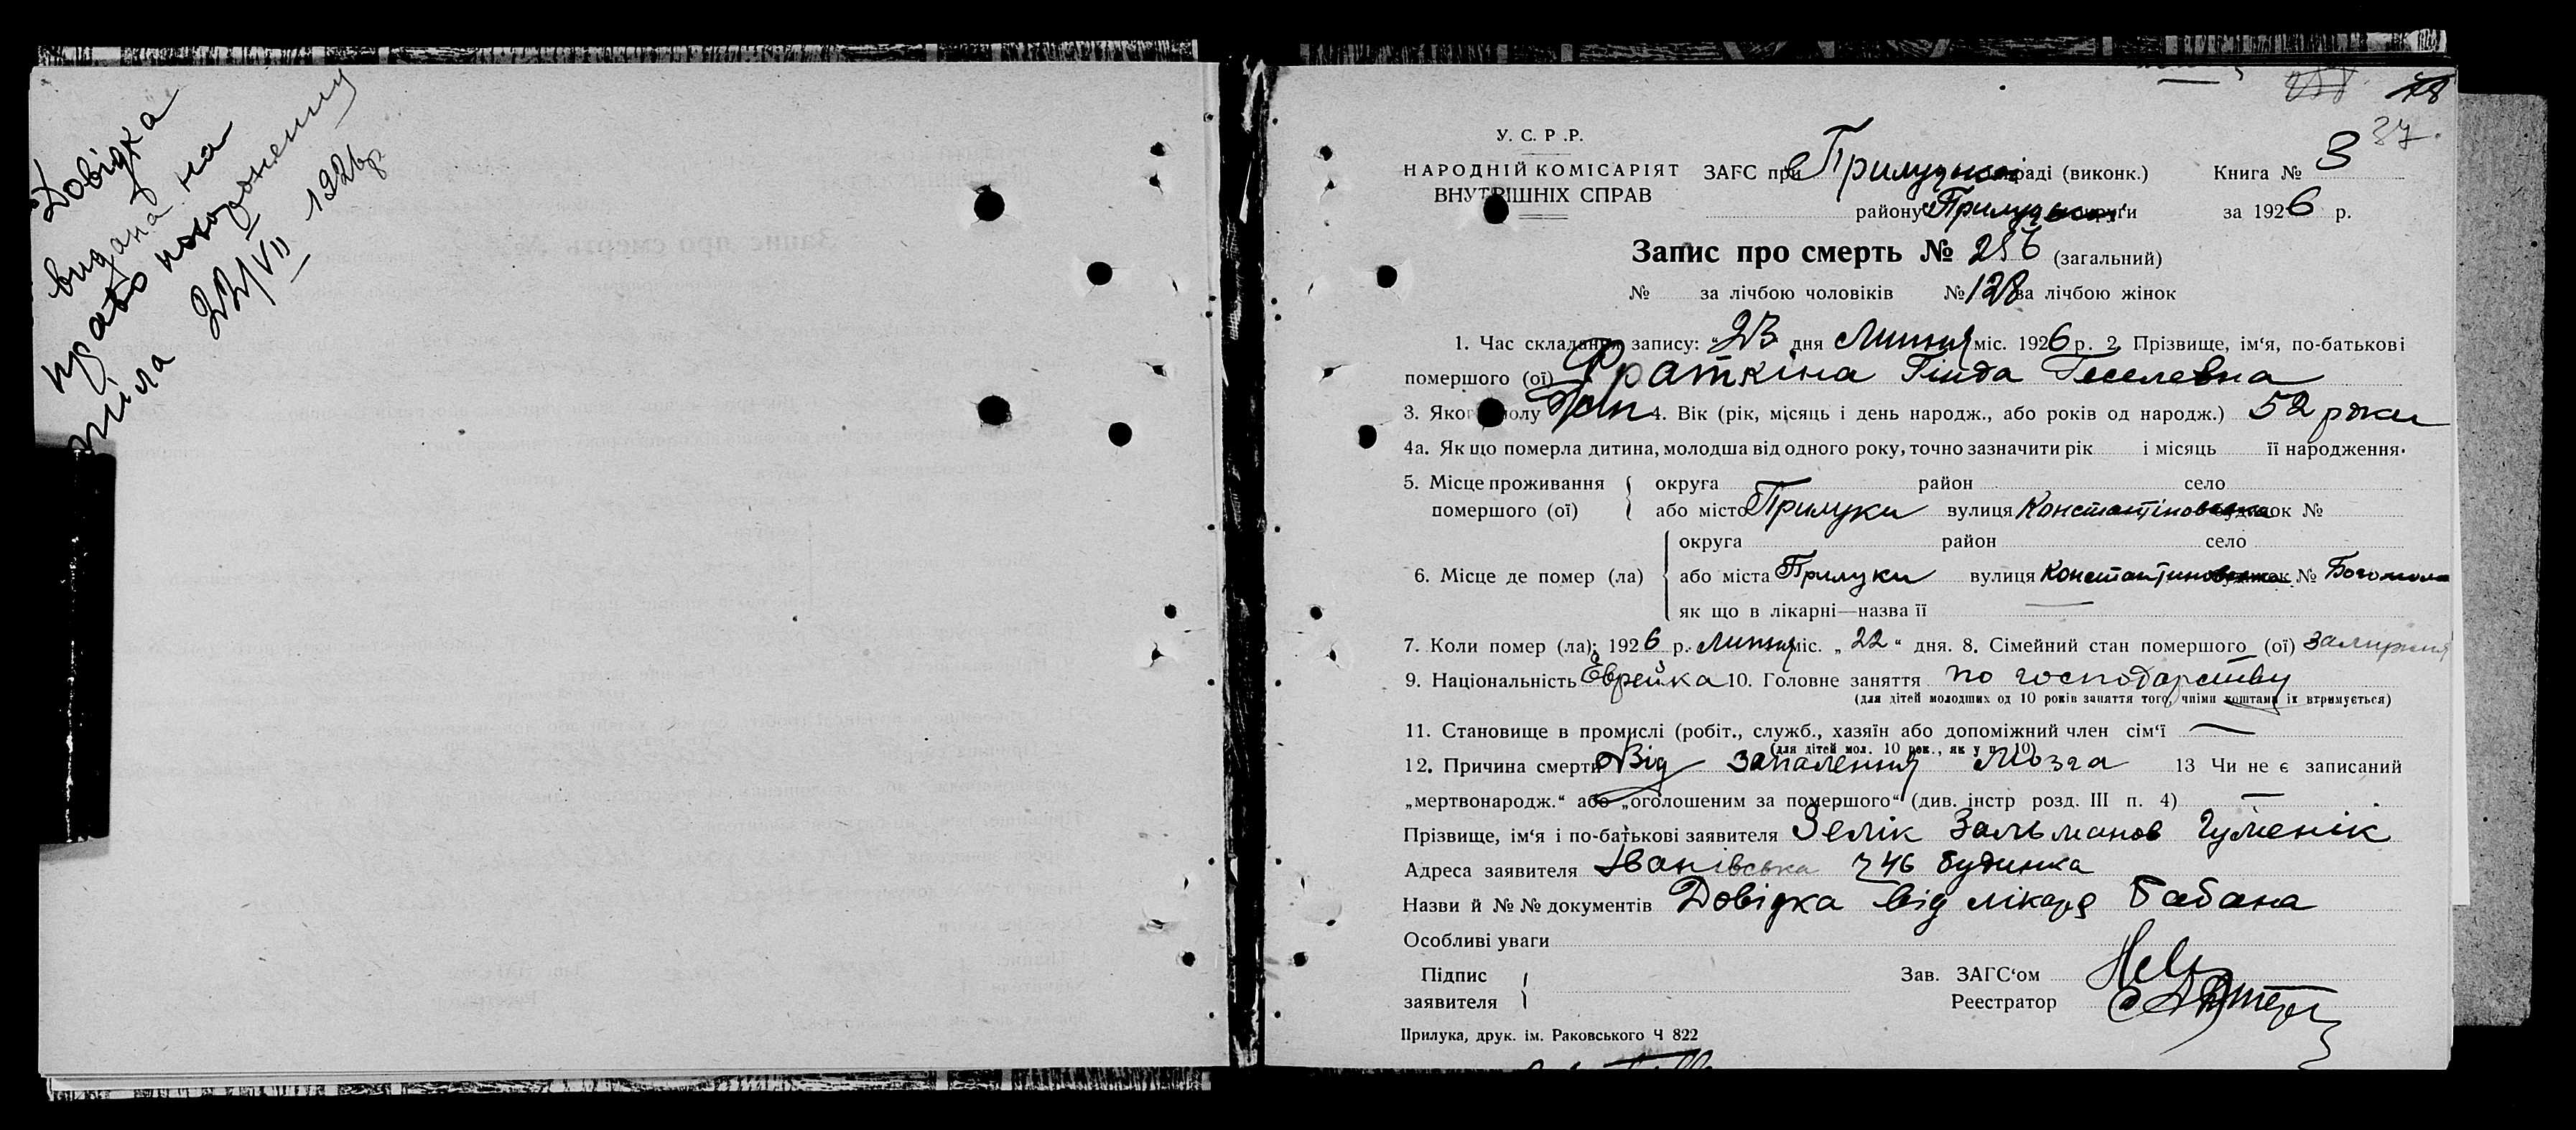 Довідка
видана на
право похоронення
тіла 22/VII 1926р
78
37.
У. С. Р .Р.
НАРОДНІЙ КОМІСАРІЯТ
ВНУТРІШНІХ СПРАВ
ЗАГС при Прилуцькій раді (виконк.) Книга № 3
району Прилуцької округи за 1926 р.
Запис про смерть № 256 (загальний)
№ за лічбою чоловіків № 128 за лічбою жінок
1. Час складання запису: „23 дня Липня міс. 1926 р. 2. Прізвище, ім‘я, по-батькові
помершого (ої) Фраткіна Гинда Геселевна
3. Якого полу Жін 4. Вік (рік, місяць і день народж., або років од народж.) 52 роки
4а. Як що померла дитина, молодша від одного року, точно зазначити рік і місяць її народження.
5. Місце проживання округа район село
помершого (ої) або місто Прилуки вулиця Константіновська будинок №
округа район село
6. Місце де помер (ла) або міста Прилуки вулиця Константиновська будинок № Богомола
як що в лікарні—назва її —
7. Коли помер (ла): 1926 р. Липня міс. „22“ дня. 8. Сімейний стан помершого (ої) Замужня
9. Національність Єврейка 10. Головне заняття по господарству
(для дітей молодших од 10 років заняття того, чиїми коштами їх втримується)
11. Становище в промислі (робіт., служб., хазяїн або допоміжний член сім‘ї —
(для дітей мол. 10 рок., як у п. 10)
12. Причина смерти Від запалення мозга 13 Чи не є записаний
„мертвонародж.“ або „оголошеним за помершого“ (див. інстр розд. III п. 4) —
Прізвище, ім‘я і по-батькові заявителя Зелік Зальманов Гуменік
Адреса заявителя Іванівська ч 46 будинка
Назви й №№ документів Довідка від лікаря Бабана
Особливі уваги
Підпис
заявителя
Зав. ЗАГС‘ом
Реестратор
Прилука, друк. ім. Раковського Ч 822